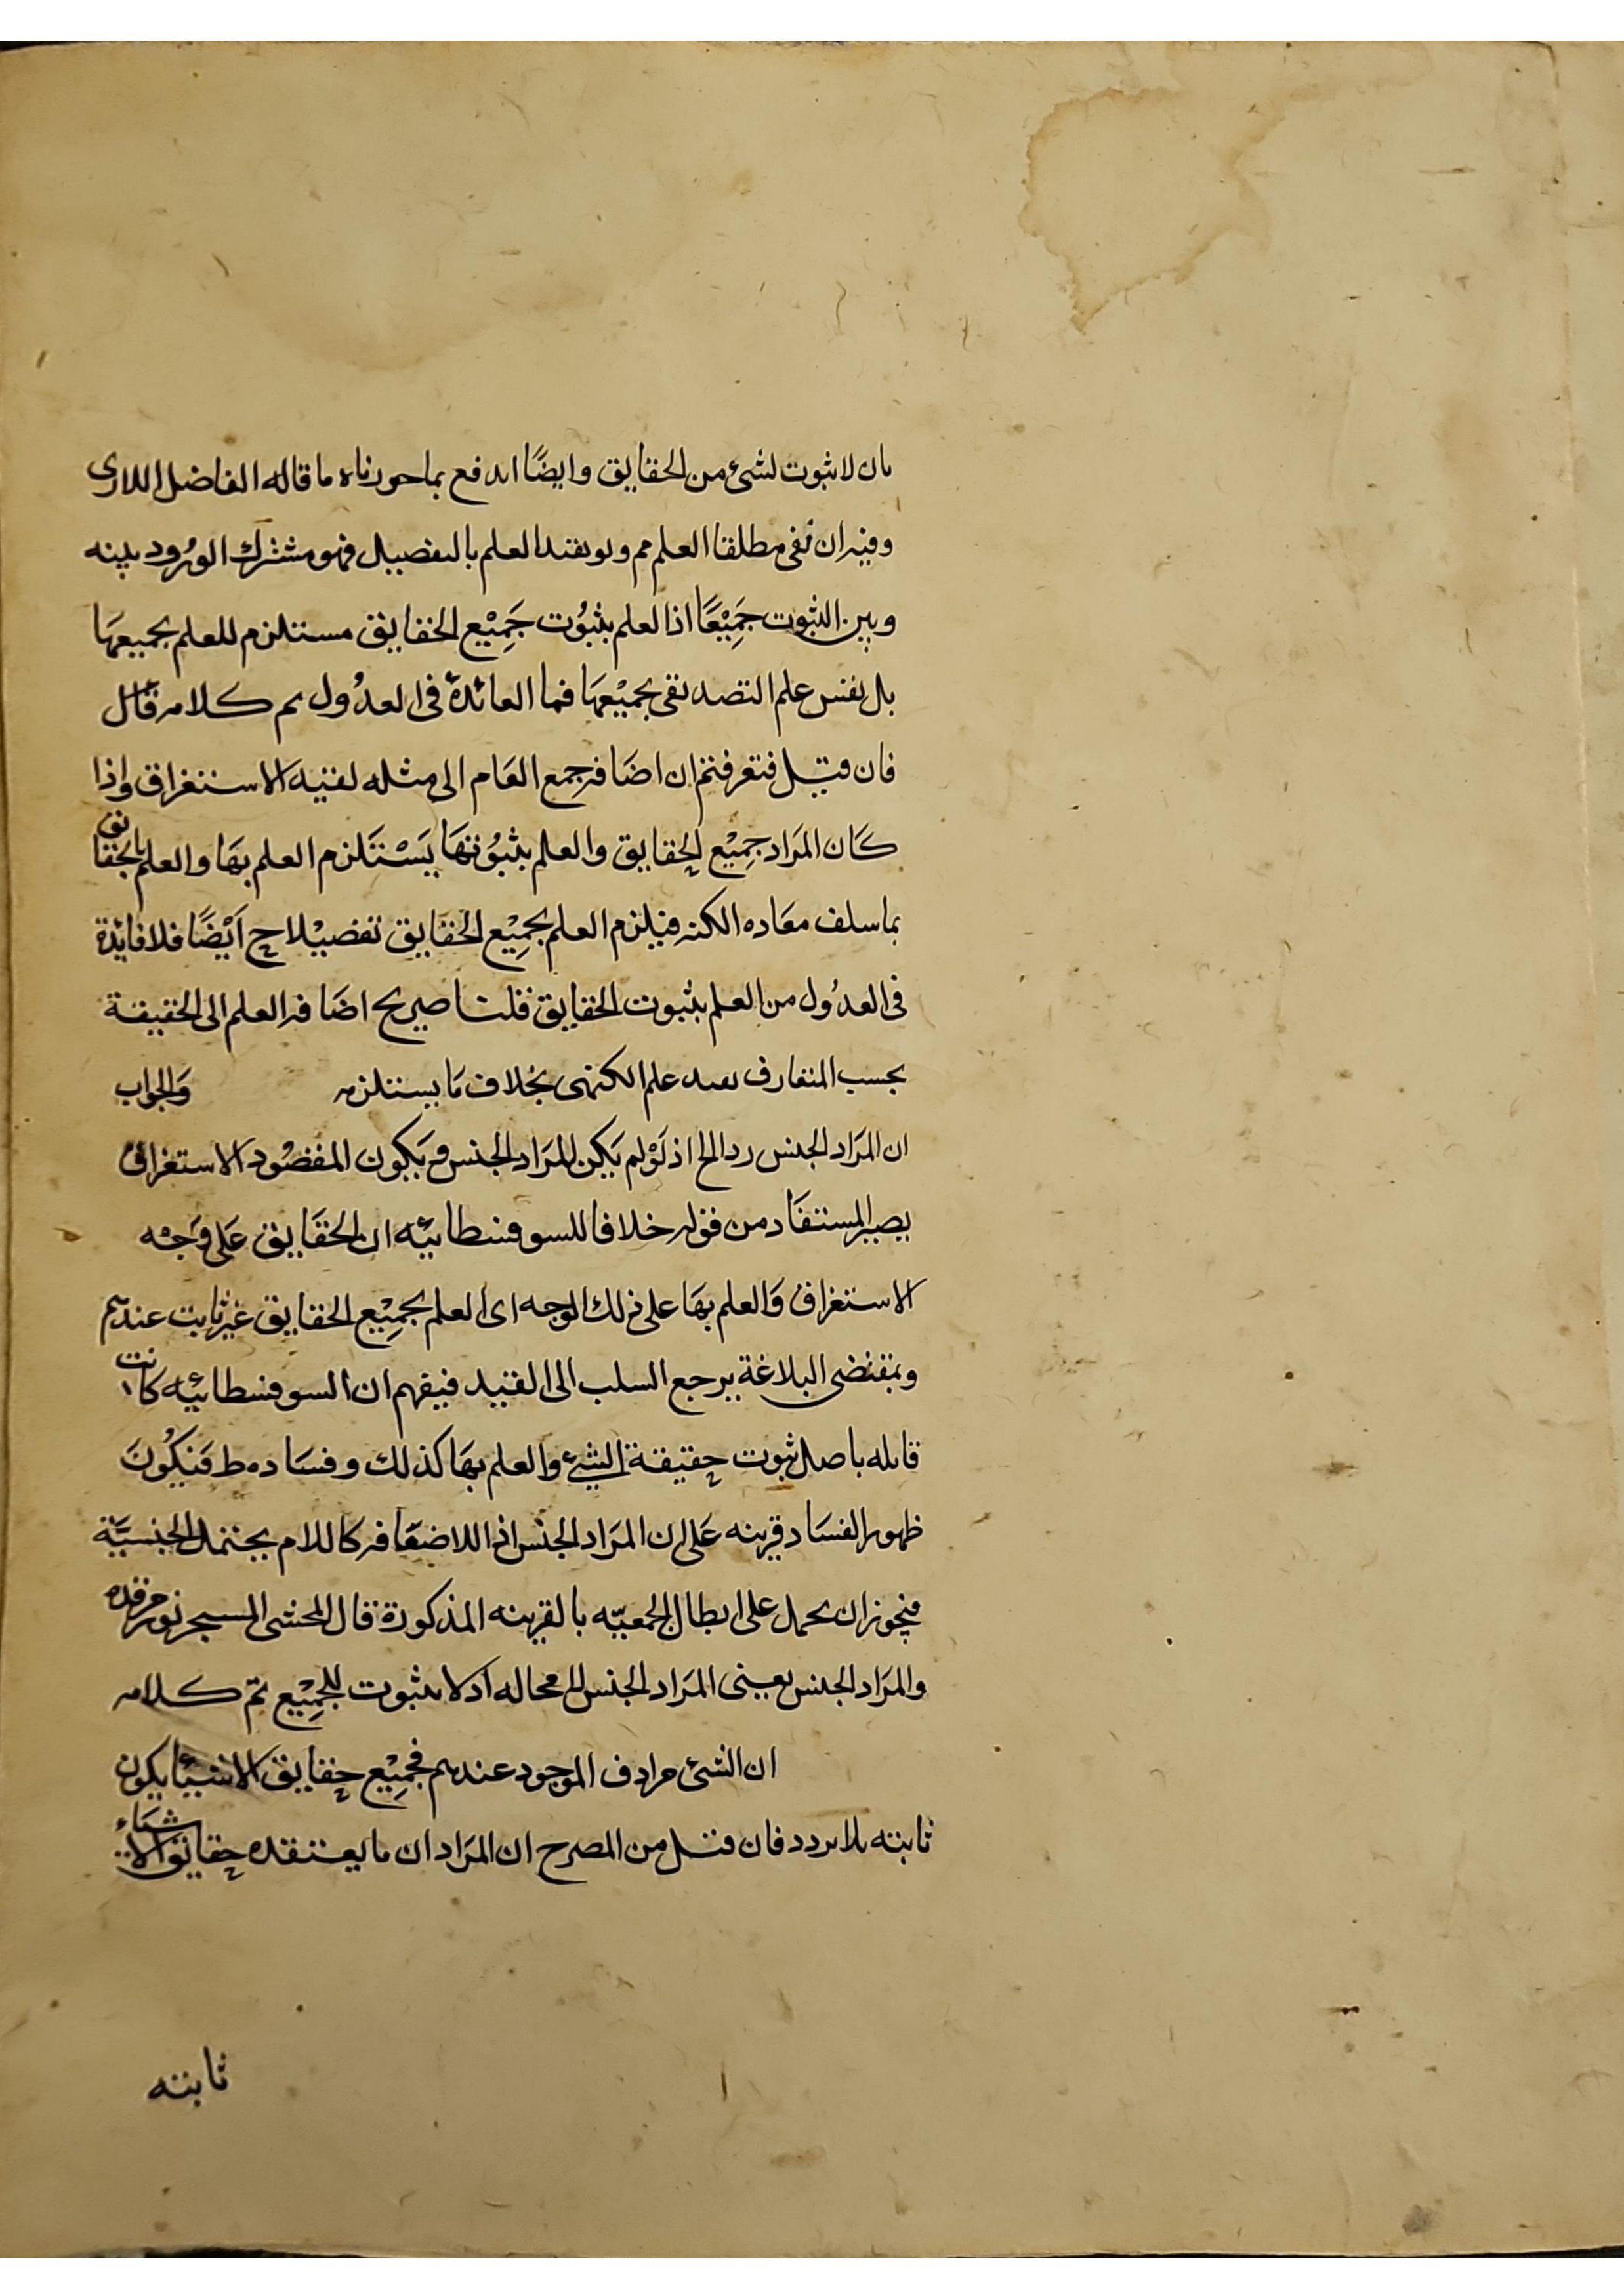 بان لا ثبوت لشئ من الحقايق وايضًا اندفع بما حررناه ما قاله الفاضل اللارى
وفيه ان نفى مطلقا العلم مم ولو بقيد العلم بالتفصيل فهو مشترك الورُود بينه
وبين الثبوت جَمِيْعًا اذا لعلم بثبُوت جَمِيْع الحقايق مستلزم للعلم بجميعهَا
بل نفس علم التصديقى بجميْعهَا فما العائدة فى العدُول تم كلامه قال
فان قيل فتعرفتم ان اضَافه جمع العَام الى مثله لفتيه الاستغراق واذا
كَان المرَاد جمِيْع الحقايق والعلم بثبُوتهَا يَسْتَلزم العلم بهَا والعلم بالحقَايق
بما سلف معَاده الكنه فيلزم العلم بجمِيْع الحقَايق تفصيْلا ح اَيْضًا فلا فايْدة
فى العدُول من العلم بثبوت الحقايق قلنا صريح اضَافه العلم الى الحقيقة
بحسب المتعارف يفيد علم الكنهى بخلاف مَا يستلزمه وَالجواب
ان المرَاد الجنس ردا الخ اذ لَوْ لم يَكن المرَاد الجنس ويَكون المقصُود الاستغراق
يصير المستفَاد من قوله خلافا للسوفسطائيه ان الحقَايق عَلى وَجْه
الاستغراق وَالعلم بهَا على ذلك الوجه اى العلم بجمِيْع الحقايق غير ثابت عندهم
وبمقتضى البلاغة يرجع السلب الى القيد فيفهم ان السوفسطائيه كانت
قايله باصل ثبوت حقيقة الشئ والعلم بهَا كذلك وفسَاده ط فَيَكُونَ
ظهور الفسَاد قرينه عَلى ان المرَاد الجنس اذ اللاضَافه كاللام يحتمل الجنسيَّة
فيجوز ان يحمل على ابطال الجمعيّه بالقرينه المذكورة قال المحشى المسيحر نور مرقده
والمرَاد الجنس يعنى المرَاد الجنس للا محاله اذ لا ثبوت للجمِيْع تمّ كلامه
ان الشئ مرادف الموجود عندهم فجمِيْع حقايق الاشيَا يكون
ثابته بلا تردد فان قيل من المصرح ان المرَاد ان ما يعتقده حقايق الاشيَاء
ثابته